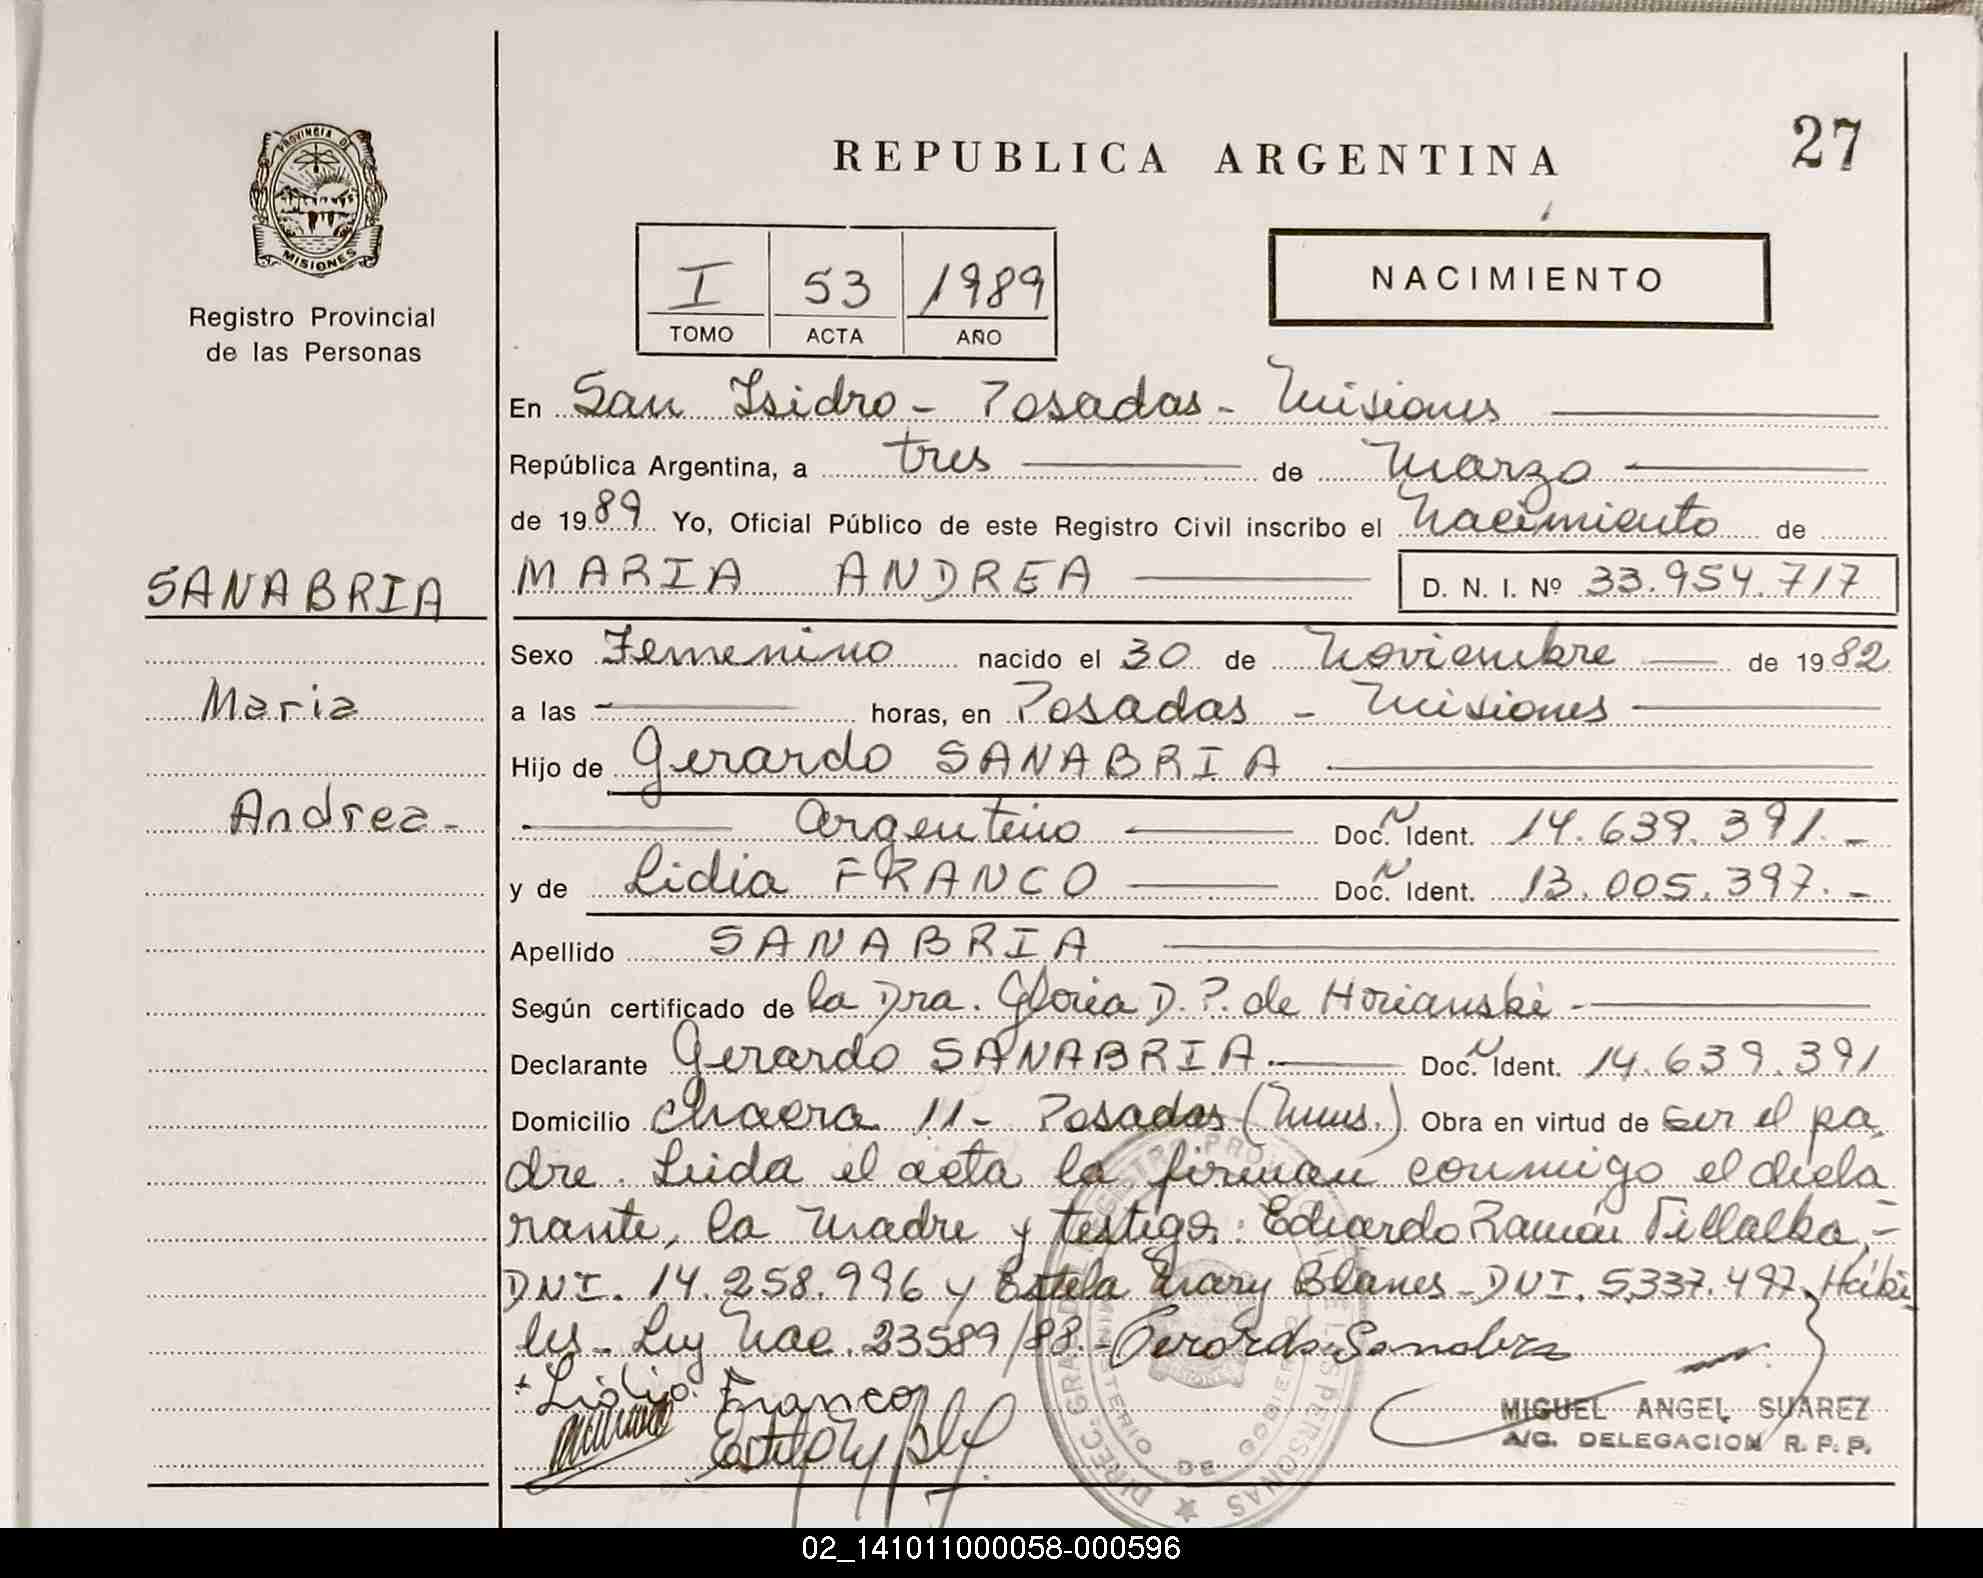 27
REPUBLICA ARGENTINA
PROVINCIA DE
MISIONES
Registro Provincial
de las Personas
I 53 1989
TOMO ACTA AÑO
NACIMIENTO
En San Isidro - Posadas - Misiones
República Argentina, a tres de Marzo
de 1989 Yo, Oficial Público de este Registro Civil inscribo el Nacimiento de
SANABRIA
MARIA ANDREA D. N. I. Nº 33.954.717
Sexo Femenino nacido el 30 de Noviembre de 1982
Maria
a las horas, en Posadas - Misiones
Hijo de Gerardo SANABRIA
Andrea -
argentino Doc. N Ident. 14.639.391.-
y de Lidia FRANCO Doc. N Ident. 13.005.397.-
Apellido SANABRIA
Según certificado de la Dra. Gloria D. P. de Horianski -
Declarante Gerardo SANABRIA. Doc. N Ident. 14.639.391
Domicilio Chacra 11- Posadas (Mnes.) Obra en virtud de ser el pa
dre. Leida el acta la firman conmigo el decla
rante, la madre y testigos: Eduardo Ramón Villalba,-
DNI. 14.258.996 y Estela Mary Blanes - DNI. 5.337.497. Hábi
les - Ley Nac. 23589/88.- Gerardo Sanabria
+ Lidia Franco
MIGUEL ANGEL SUAREZ
A/C. DELEGACION R. P. P.
02_141011000058-000596